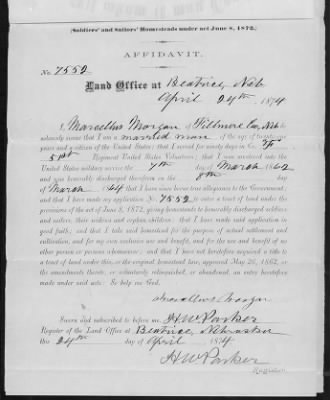 (Soldiers' and Sailors' Homesteads under act June 8, 1872.)
AFFIDAVIT.
No. 7552
Land Office at Beatrice, Neb
April 24th, 1874
I, Marcellus Morgan of Fillmore Co, Neb do
solemnly swear that I am a married man of the age of twenty-one
years and a citizen of the United States; that I served for ninety days in Co.
51st Regiment United States Volunteers; that I was mustered into the
United States military service the 7th day of March 1862
and was honorably discharged therefrom on the 8th
of March 1864 that I have since borne true allegiance to the Government;
and that I have made my application No. 7552 to enter a tract of land under the
provisions of the act of June 8, 1872, giving homesteads to honorably discharged soldiers
and sailors, their widows and orphan children; that I have made said application in
good faith; and that I take said homestead for the purpose of actual settlement and
cultivation, and for my own exclusive use and benefit, and for the use and benefit of no
other person or persons whomsoever; and that I have not heretofore acquired a title to
a tract of land under this, or the original homestead law, approved May 20, 1862, or
the amendments thereto, or voluntarily relinquished, or abandoned, an entry heretofore
made under said acts: So help me God.
Marcellus Morgan
Sworn and subscribed to before me H W Parker
Register of the Land Office at Beatrice, Nebraska
this 24th day of April 1874
H W Parker
Register